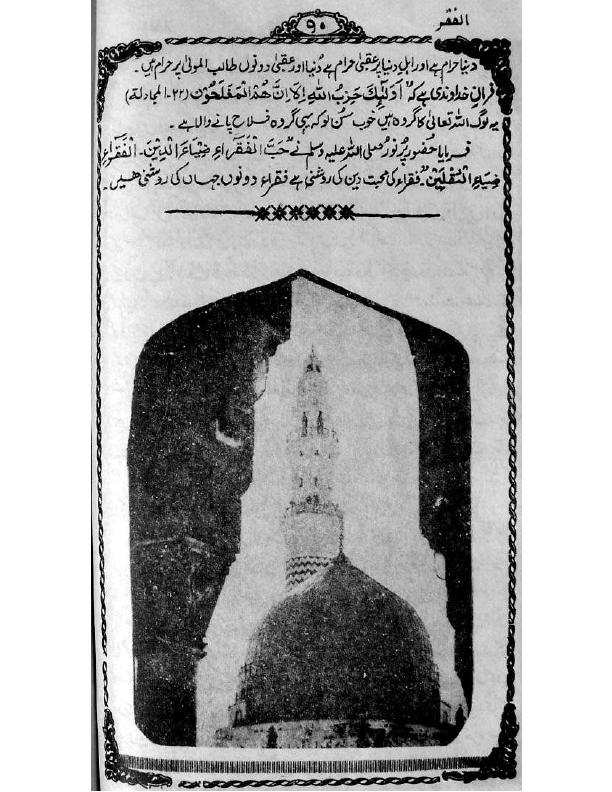 الفقر
۹۰
دنیا حرام ہے اور اہل دنیا پر عقبیٰ حرام ہے دُنیا اور عقبیٰ دونوں طالب المولیٰ پر حرام ہیں۔
فرمانِ خداوندی ہے کہ "اُولٰٓئِكَ حِزْبُ اللهِ اِلَا اِنَّ هُدَا الْمُفْلِحُوْن (۲۲-المجادلۃ)
یہ لوگ اللہ تعالیٰ کا گروہ ہیں خوب سُن لو کہ یہی گروہ فلاح پانے والا ہے۔
فرمایا حضُور پُر نُور صلی اللہ علیہ وسلم نے "حُبُّ الْفُقَرَاءِ ضِيَاءُ الدِّيْنِ۔ اَلْفُقَرَاءُ
ضِيَاءُ الثَّقَلَيْنِ"۔ فقراء کی محبت دین کی روشنی ہے فقراء دونوں جہاں کی روشنی ھیں۔